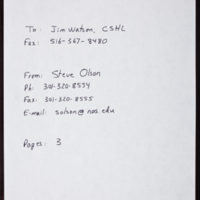 To: Jim Watson, CSHL
Fax: 516-367-8480
From: Steve Olson
Ph: 301-320-8554
Fax: 301-320-8555
E-mail: solson@nas.edu
Pages: 3